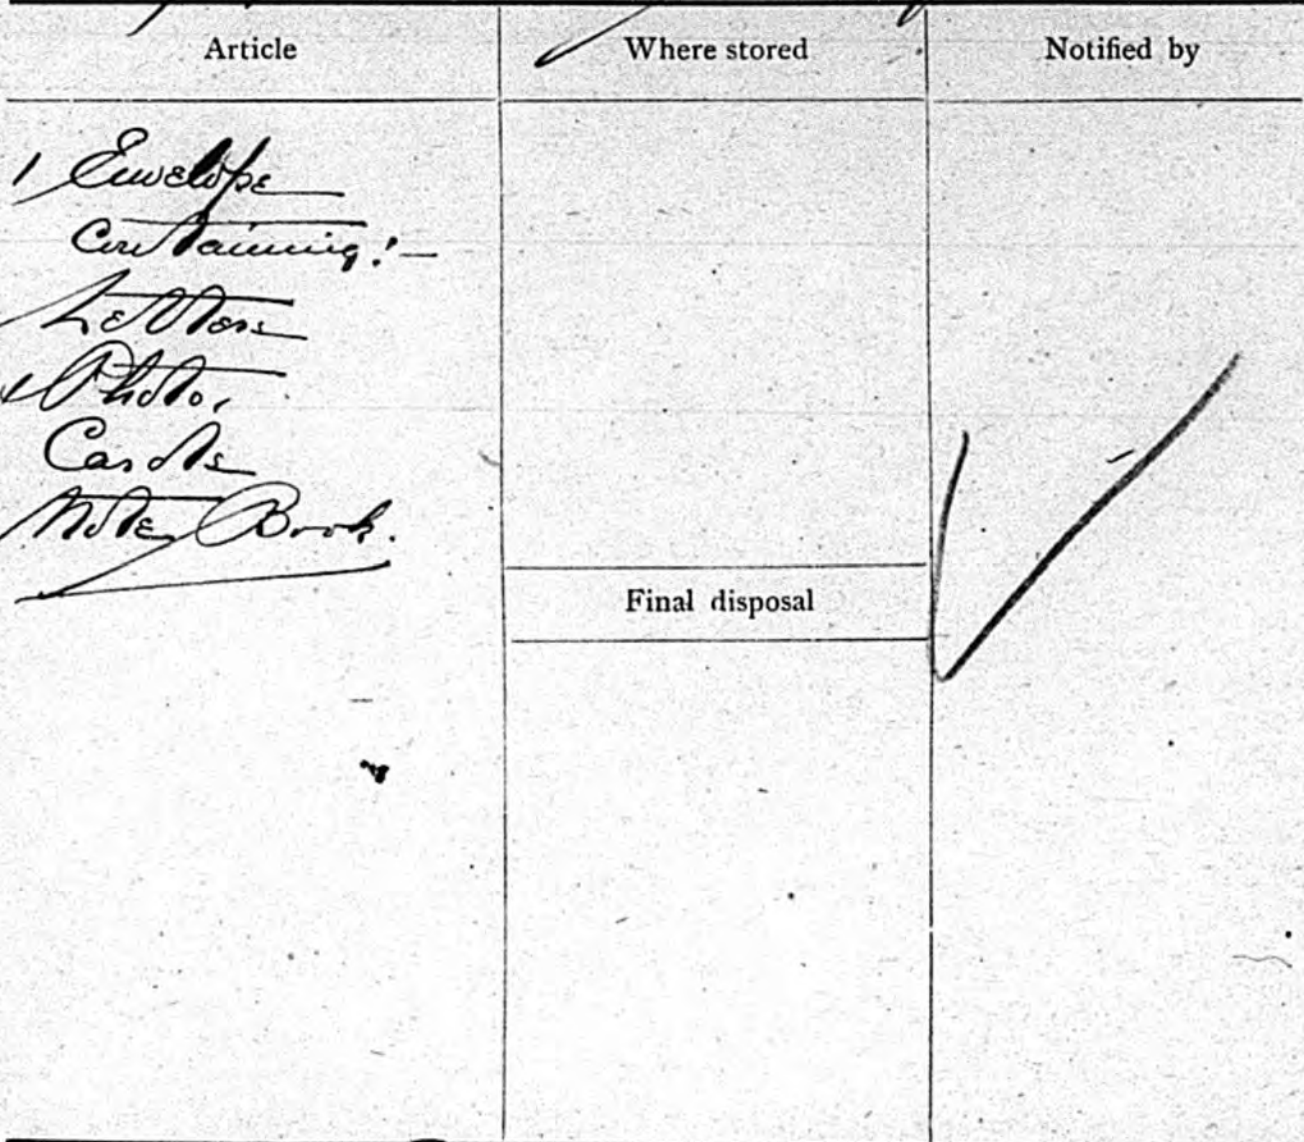 Article Where stored Notified by
1 Envelope
Containing:—
Letters
Photo,
Cards
Note Book.
Final disposal